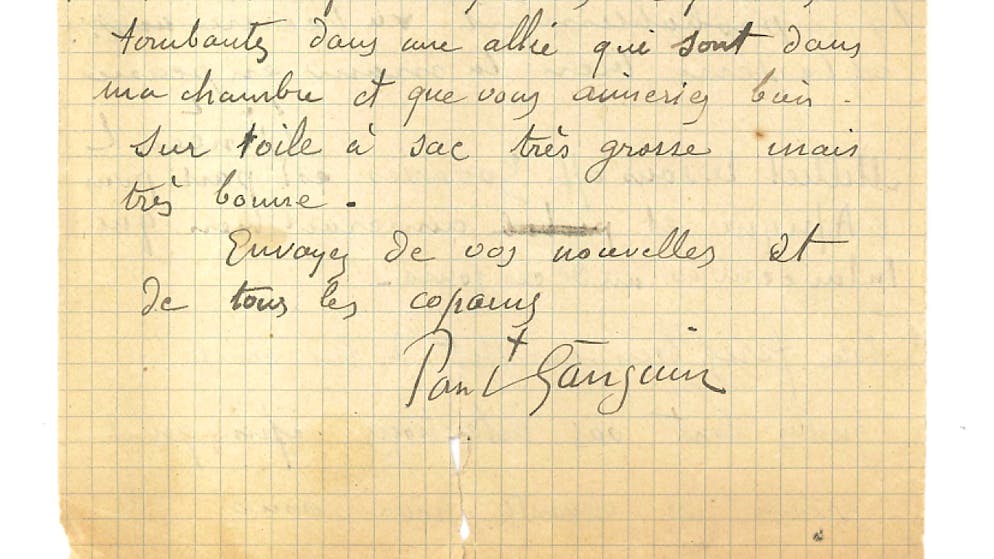 tombantes dans une allée qui sont dans
ma chambre et que vous aimeriez bien.
Sur toile à sac très grosse mais
très bonne.
Envoyez de vos nouvelles et
de tous les copains
Paul Gauguin